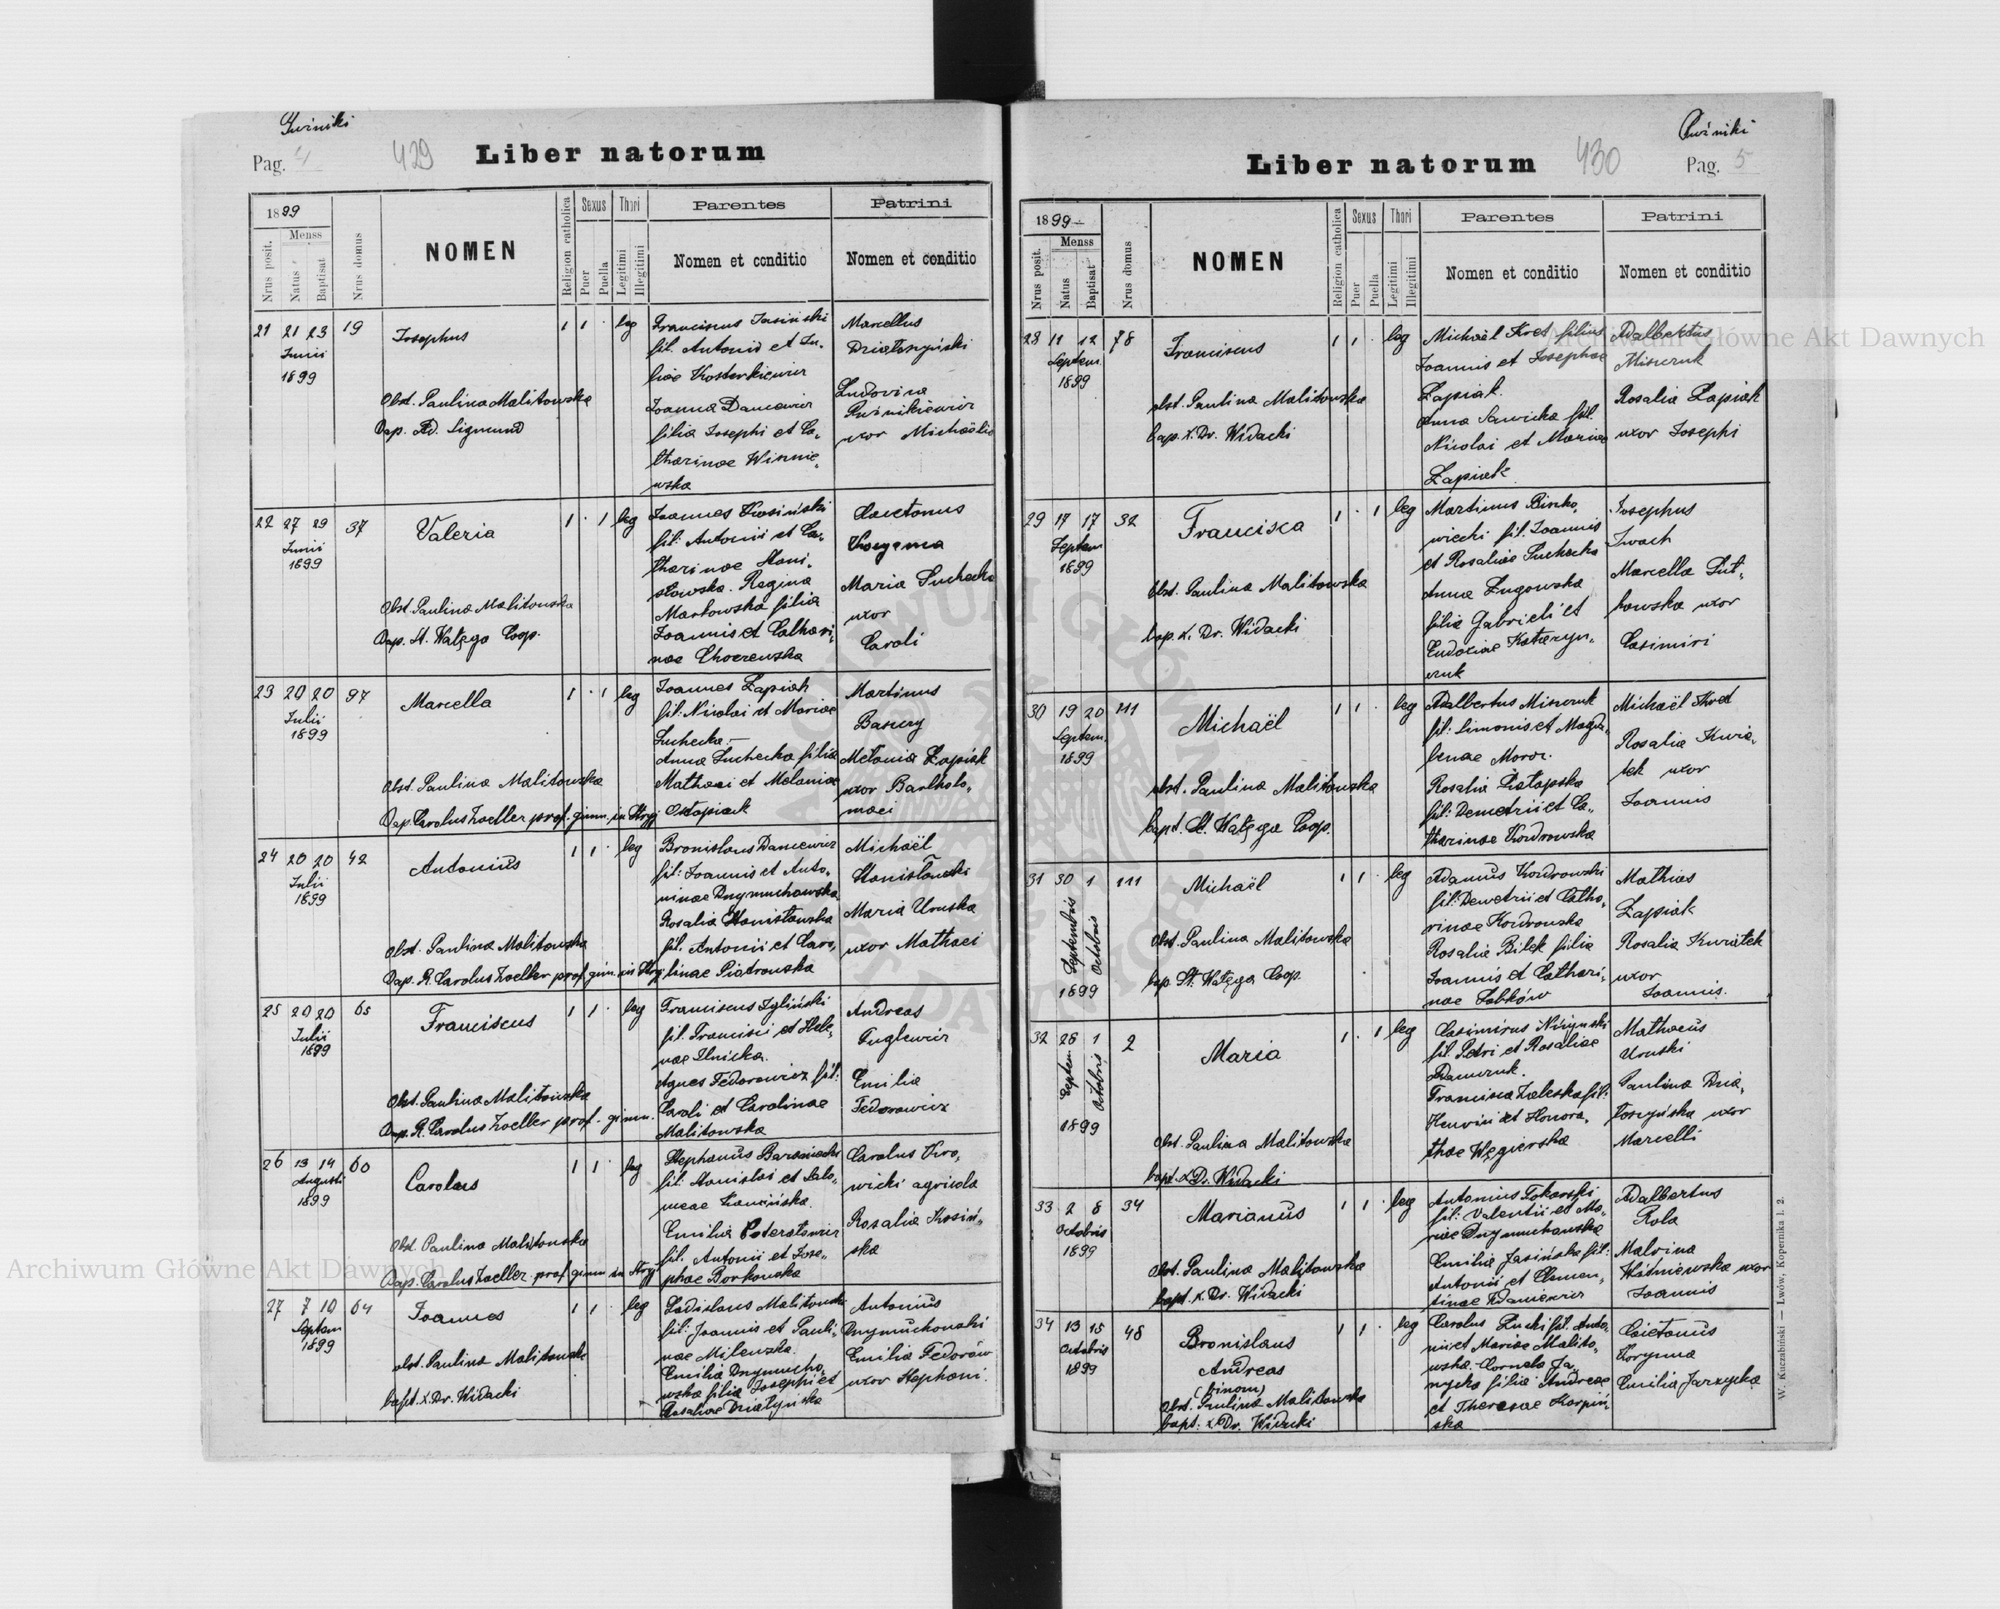 Pag. 4
429
Liber natorum
1899
Nrus posit.
Menss
Natus
Baptisat
Nrus domus
NOMEN
Religion catholica
Sexus
Puer
Puella
Thori
Legitimi
Illegitimi
Parentes
Nomen et conditio
Patrini
Nomen et conditio
21 21 23 19
Junii
1899
Josephus
1 1 · leg
Obst. Paulina Malitowska
Bap. Ad. Zigmund
Franciscus Jasiński
fil. Antonii et Ju-
liae Kosterkiewicz
Joanna Dancewicz
filia Josephi et Ca-
tharinae Wisznie-
wska
Marcellus
Działoszyński
Ludovica
uxor Michaëlis
22 27 29 37
Junii
1899
Valeria
1 · 1 leg
Obst. Paulina Malitowska
Bap. St. Wałęga Coop.
Joannes Kosiński
fil. Antonii et Ca-
tharinae Stani-
sławska. Regina
Markowska filia
Joannis et Cathari-
nae
Caietanus
Korzenna
Maria Suchecka
uxor
Caroli
23 20 20 97
Julii
1899
Marcella
1 · 1 leg
Obst. Paulina Malitowska
Bap. Carolus Zoeller prof. gimn. in Stryj
Joannes Łapiak
fil: Nicolai et Mariae
Suchecka.-
Anna Suchecka filia
Mathaei et Melaniae
Ostapiak
Martinus
Melania Łapiak
uxor Bartholo-
maei
24 20 20 42
Julii
1899
Antonius
1 1 · leg
Obst. Paulina Malitowska
Bap. R. Carolus Zoeller prof. gim. in Stryj
Bronislaus Dancewicz
fil: Joannis et Anto-
ninae Dnymuchowska
Rosalia Stanisławska
fil. Antonii et Caro-
linae Piotrowska
Michaël
Stanisławski
Maria Uruska
uxor Mathaei
25 20 20 65
Julii
1899
Franciscus
1 1 · leg
Obst. Paulina Malitowska
Bap. R. Carolus Zoeller prof. gimn.
Franciscus Zyliński
fil. Francisci et Hele-
nae Ilnicka.
Agnes Fedorowicz fil:
Caroli et Carolinae
Malitowska
Andreas
Guglewicz
Emilia
Fedorowicz
26 13 14 60
Augusti
1899
Carolus
1 1 · leg
Obst. Paulina Malitowska
Bap. Carolus Zoeller prof. gimn in Stryj
Stephanus Baraniecki
fil: Stanislai et Salo-
meae
Emilia
fil. Antonii et Jose-
phae Borkowska
Carolus Kro-
wicki agricola
Rosalia Kosiń-
ska
27 7 10 64
Septem
1899
Joannes
1 1 · leg
obst. Paulina Malitowska
bapt. x. Dr. Widacki
Ladislaus Malitowski
fil: Joannis et Pauli-
nae Milewska.
Emilia Dnymucho-
wska filia Josephi et
Rosaliae
Antonius
Dnymuchowski
Emilia Fedorów
uxor Stephani.
Liber natorum
430
Pag. 5
1899
Nrus posit.
Menss
Natus
Baptisat
Nrus domus
NOMEN
Religion catholica
Sexus
Puer
Puella
Thori
Legitimi
Illegitimi
Parentes
Nomen et conditio
Patrini
Nomen et conditio
28 11 12 78
Septem
1899
Franciscus
1 1 · leg
obst. Paulina Malitowska
bap. x. Dr. Widacki
Michaël Kret filius
Joannis et Josephae
Łapiak.
Anna Sawicka fil.
Nicolai et Mariae
Łapiak
Adalbertus
Misiurak
Rosalia Łapiak
uxor Josephi
29 17 17 32
Septem
1899
Francisca
1 · 1 leg
Obst. Paulina Malitowska
bap. x. Dr. Widacki
Martinus Binko-
wiecki fil. Joannis
et Rosaliae Suchecka
Anna Zugowska
filia Gabrieli et
Eudociae Katarzyn-
czuk
Josephus
Iwach
Marcella Rut-
kowska uxor
Casimiri
30 19 20 111
Septem.
1899
Michaël
1 1 · leg
obst. Paulina Malitowska
bapt. St. Wałęga Coop.
Adalbertus Misiurak
fil: Simonis et Magda-
lenae Moroz.
Rosalia
fil: Demetrii et Ca-
tharinae Kozdrowska
Michaël Kret
Rosalia Kwia-
tek uxor
Joannis
31 30 1 111
Septembris
Octobris
1899
Michaël
1 1 · leg
Obst. Paulina Malitowska
bap. St. Wałęga Coop.
Adamus Kozdrowski
fil: Demetrii et Catha-
rinae Kozdrowska
Rosalia Bilek filia
Joannis et Cathari-
nae Sobków
Mathias
Łapiak
Rosalia Kwiatek
uxor
Joannis.
32 26 1 2
Septem.
Octobris
1899
Maria
1 · 1 leg
Obst. Paulina Malitowska
bapt. x. Dr. Widacki
Casimirus
fil. Petri et Rosaliae
Francisca Zaleska fil:
et Honora-
thae Węgierska
Mathaeus
Uruski
Paulina Dzia-
łoszyńska uxor
Marcelli
33 2 8 34
Octobris
1899
Marianus
1 1 · leg
obst. Paulina Malitowska
bapt. x. Dr. Widacki
Antonius Tokarski
fil: Valentii et Ma-
riae Dnymuchowska
Emilia Jasińska fil:
Antonii et Clemen-
tinae
Adalbertus
Rola
Malvina
Wiśniewska uxor
Joannis
34 13 15 48
Octobris
1899
Bronislaus
Andreas
(binom)
1 1 · leg
Obst. Paulina Malitowska
bapt. x Dr. Widacki
Carolus Łucki fil. Anto-
nii et Mariae Malito-
wska. Cornela Ja-
rzycka filia Andreae
et Theresae Karpiń-
ska
Caietanus
Korzenna
Emilia Jarzycka
W. Kuczabiński — Lwów, Kopernika l. 2.
Archiwum Główne Akt Dawnych
Archiwum Główne Akt Dawnych